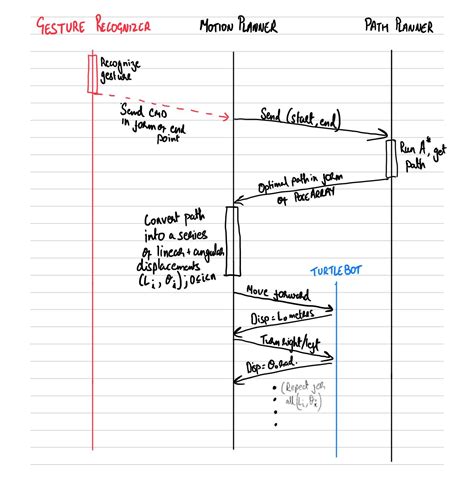 GESTURE RECOGNIZER
MOTION PLANNER
PATH PLANNER
Recognize
gesture
Send CMD
in form of end
point
Send (start, end)
Run A*, get
path
Optimal path in form
of PoseARRAY
Convert path
into a series
of linear + angular
displacements
(Lᵢ, θᵢ); 0≤i≤n
TURTLEBOT
Move forward
Disp = L₀ metres
Turn right/left
Disp = θ₀ rad.
(Repeat for
all (Lᵢ, θᵢ)